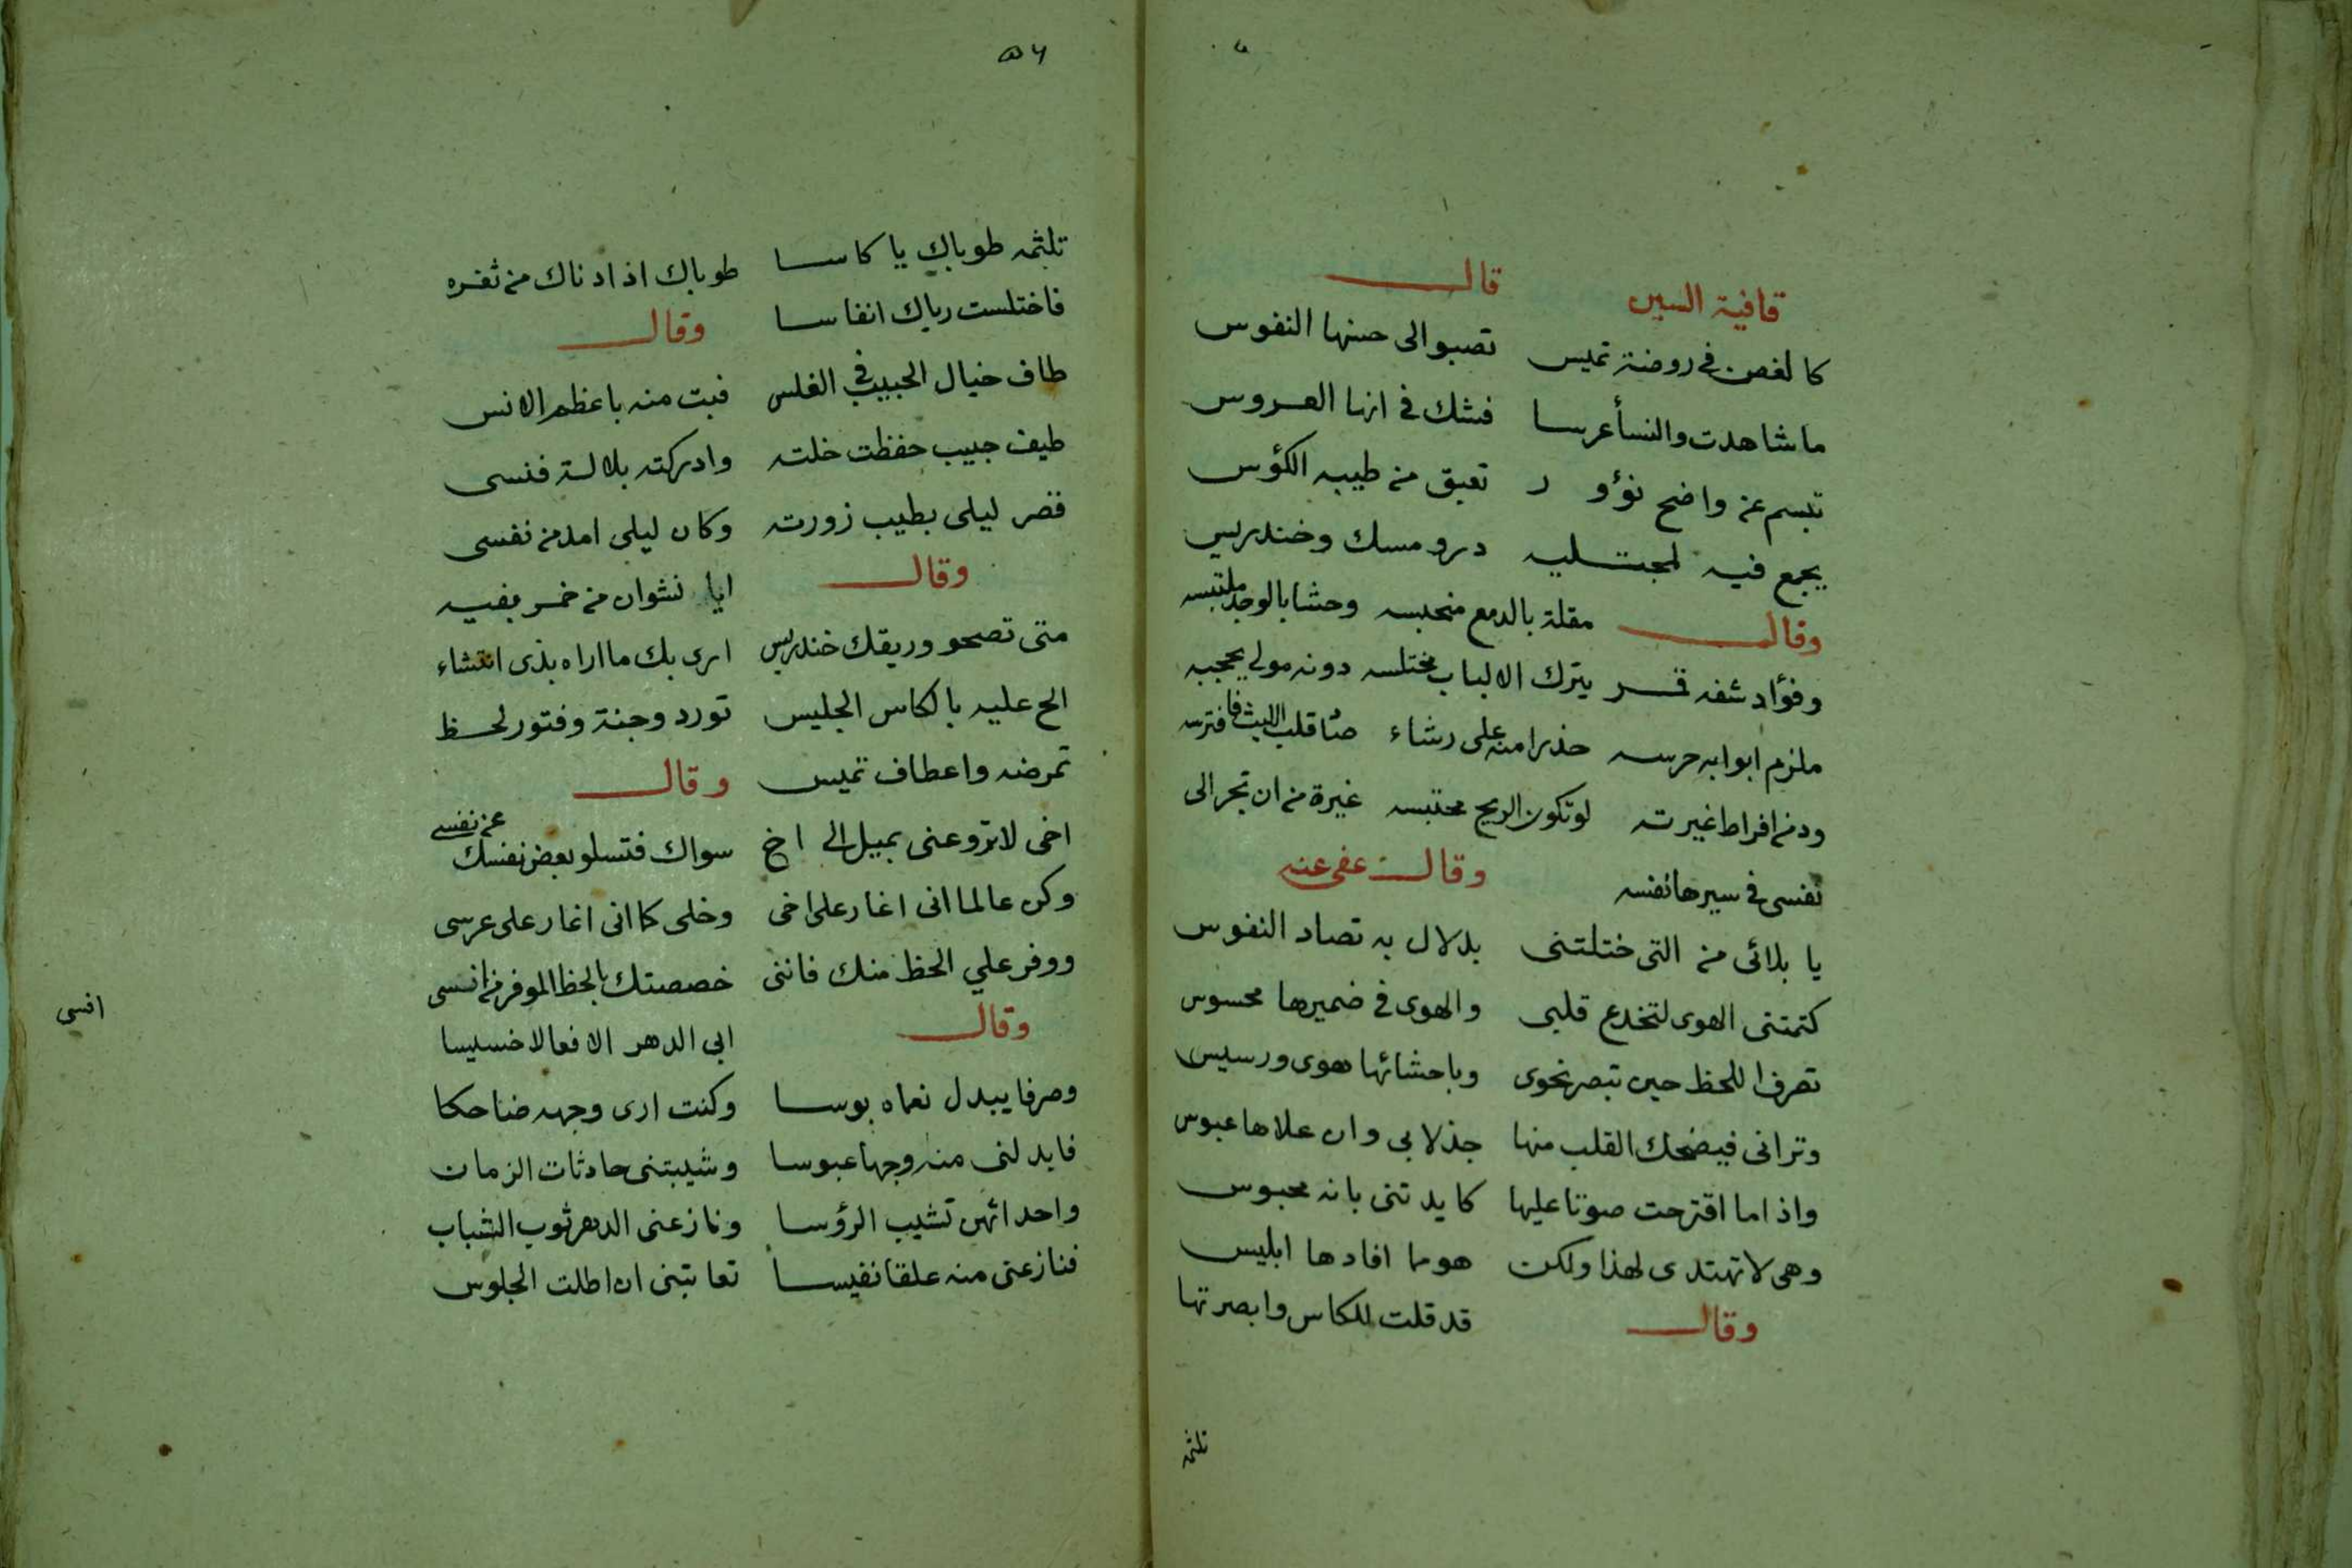 قافية السين قال
كالغصن في روضة تميس تصبو الى حسنها النفوس
ما شاهدت والنسأ عرسا فشك في انها العروس
تبسم عن واضح نؤور تعبق من طيبه الكؤس
يجمع فيه لمجتليه در ومسك وخندريس
وقال مقلة بالدمع منحبسه وحشا بالوجد ملتبسه
وفؤاد شفه قمر يترك الالباب مختلسه دونه مولي يحجبه
ملزم ابوابه حرسه حذرا منه على رشاء صٌا قلب الليث فافترسه
ود من افراط غيرته لو تكون الريح محتبسه غيرة من ان تجر الى
نفسى في سيرها نفسه وقال عفى عنه
يا بلائى من التى ختلتنى بدلال به تصاد النفوس
كتمتنى الهوى لتخدع قلبى والهوى في ضميرها محسوس
تصرف اللحظ حين تبصر نحوى وباحشائها هوى ورسيس
وترانى فيضحك القلب منها جذلا بى وان علاها عبوس
واذا ما اقترحت صوتا عليها كايدتنى بانه محبوس
وهى لا تهتدى لهذا ولكن هو مما افادها ابليس
وقال قد قلت للكاس وابصرتها
تلثمه
٥٦
تلثمه طوباك يا كاسا طوباك اذ ادناك من ثغره
فاختلست رياك انفاسا وقال
طاف خيال الحبيب في الغلس فبت منه باعظم الانس
طيف حبيب حفظت خلته وادركته بلالة فنسى
قصر ليلى بطيب زورته وكان ليلى امد من نفسى
وقال ايا نشوان من خمر بفيه
متى تصحو وريقك خندريس ارى بك ما اراه بذى انتشاء
الح عليه بالكاس الجليس تورد وجنة وفتور لحظ
تمرضه واعطاف تميس وقال
اخى لا تزوعنى بميل الى اخ سواك فتسلو بعض نفسك عن نفسى
وكن عالما انى اغار على اخى وخلى كما انى اغار على عرسى
ووفر علي الحظ منك فاننى خصصتك بالحظ الموفر من انسى
وقال ابى الدهر الا فعالا خسيسا
افسى
وصرفا يبدل نعماه بوسا وكنت ارى وجهه ضاحكا
فابدلنى منه وجها عبوسا وشيبتنى حادثات الزمان
واحداثهن تشيب الرؤسا ونازعنى الدهر ثوب الشباب
فنازعنى منه علقا نفيسا تعاتبنى ان اطلت الجلوس